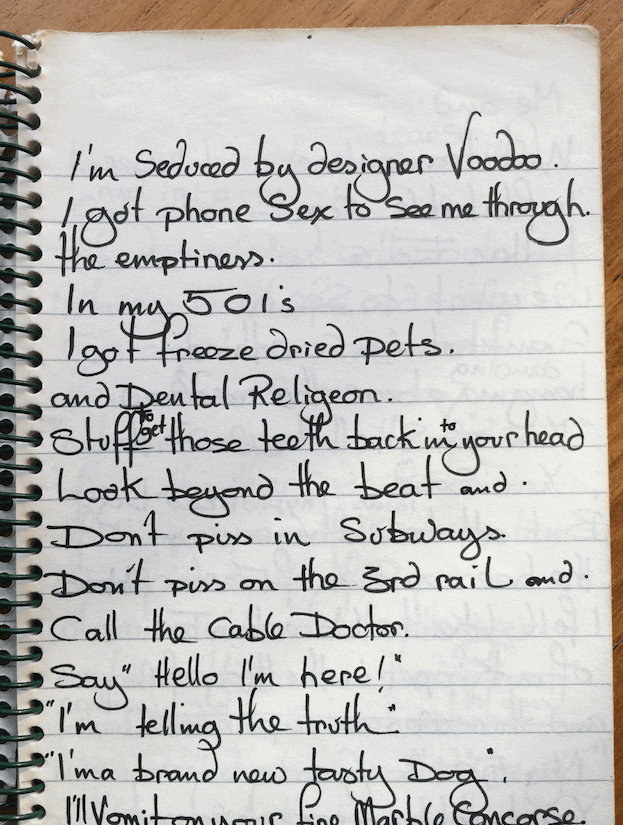 I'm Seduced by designer Voodoo.
I got phone Sex to See me through.
the emptiness.
In my 501's
I got freeze dried pets.
and Dental Religeon.
Stuff to get those teeth back in to your head
Look beyond the beat and.
Don't piss in Subways.
Don't piss on the 3rd rail and.
Call the Cable Doctor.
Say" Hello I'm here!"
"I'm telling the truth"
"I'ma brand new tasty Dog".
I'll Vomit on your fine Marble Concorse.